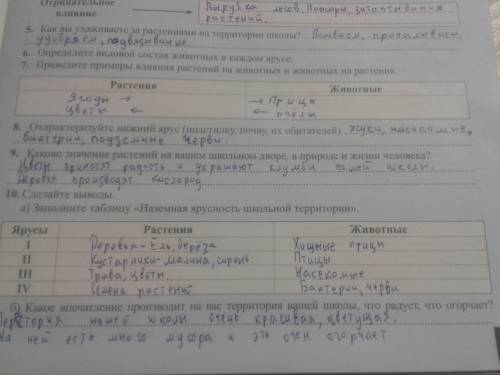 (Отрицательное влияние
Вырубка лесов, Пожары, затаптывание
растений.
5. Как вы ухаживаете за растениями на территории школы? Поливаем, пропалываем,
удобряем, подвязывание.
6. Определите видовой состав животных в каждом ярусе.
7. Приведите примеры влияния растений на животных и животных на растения.
Растения Животные
Ягоды → → Птицы
Цветы ← ← пчёлы
8. Охарактеризуйте нижний ярус (подстилку, почву, их обитателей) жуки, насекомые,
бактерии, подземные черви.
9. Каково значение растений на вашем школьном дворе, в природе и жизни человека?
Цветы приносят радость и украшают клумбы нашей школы.
Деревья производят кислород
10. Сделайте выводы.
а) Заполните таблицу «Наземная ярусность школьной территории».
Ярусы Растения Животные
I Деревья - Ель, берёза Хищные птицы
II Кустарники - малина, сирень. Птицы
III Трава, цветы. Насекомые
IV Семена растений Бактерии, черви
б) Какое впечатление производит на вас территория вашей школы, что радует, что огорчает?
Территория нашей школы очень красивая, цветущая.
На ней есть много мусора и это очен огорчает